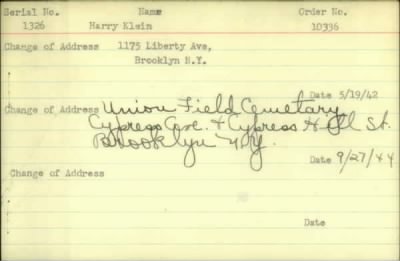 Serial No. Name Order No.
1326 Harry Klein 10336
Change of Address 1175 Liberty Ave,
Brooklyn N.Y.
Date 5/19/42
Change of Address Union Field Cemetary
Cypress Ave. + Cypress Hill St.
Brooklyn N.Y.
Date 9/27/44
Change of Address
Date